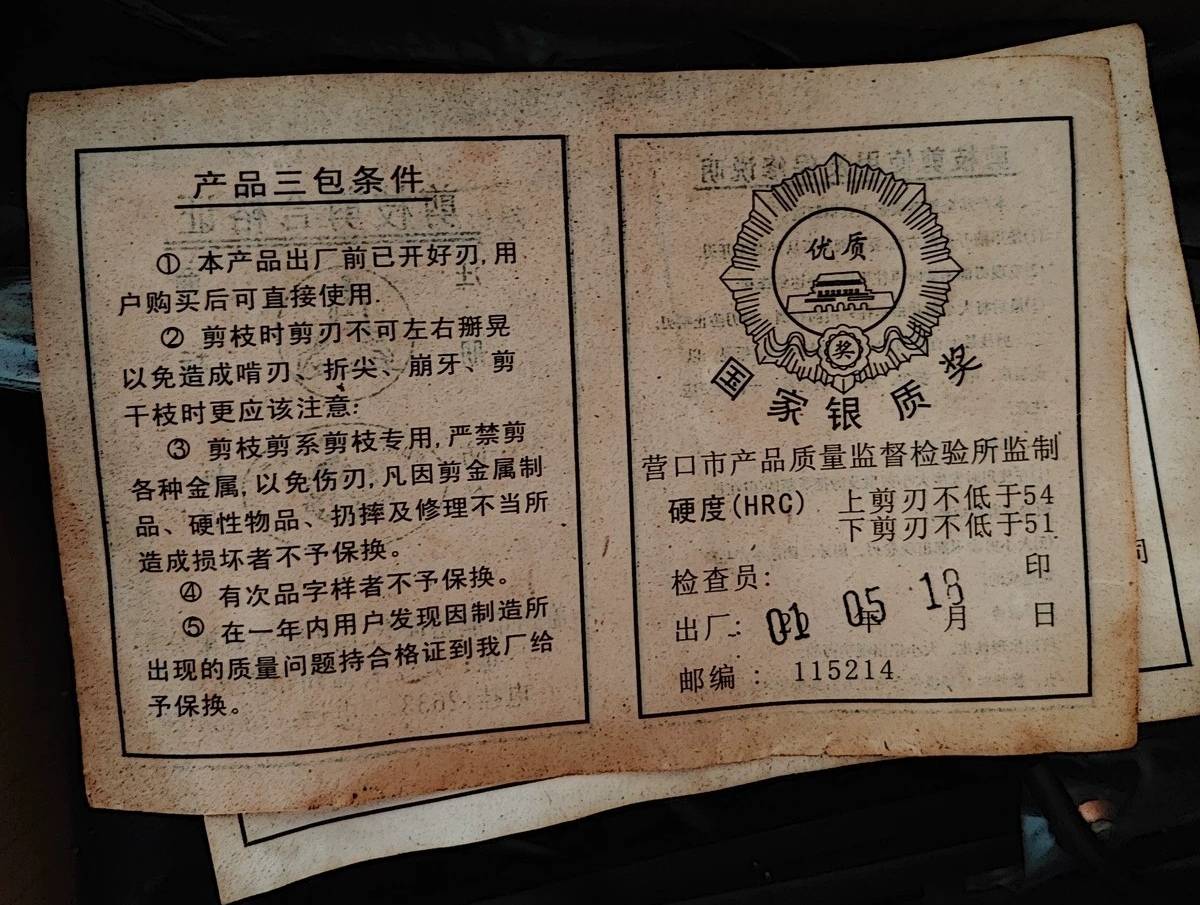 产品三包条件
① 本产品出厂前已开好刃,用
户购买后可直接使用.
② 剪枝时剪刃不可左右掰晃
以免造成啃刃、折尖、崩牙、剪
干枝时更应该注意:
③ 剪枝剪系剪枝专用,严禁剪
各种金属,以免伤刃,凡因剪金属制
品、硬性物品、扔摔及修理不当所
造成损坏者不予保换。
④ 有次品字样者不予保换。
⑤ 在一年内用户发现因制造所
出现的质量问题持合格证到我厂给
予保换。
优质
奖
国家银质奖
营口市产品质量监督检验所监制
硬度(HRC) 上剪刃不低于54
下剪刃不低于51
检查员: 印
出厂: 01 年 05 月 18 日
邮编: 115214